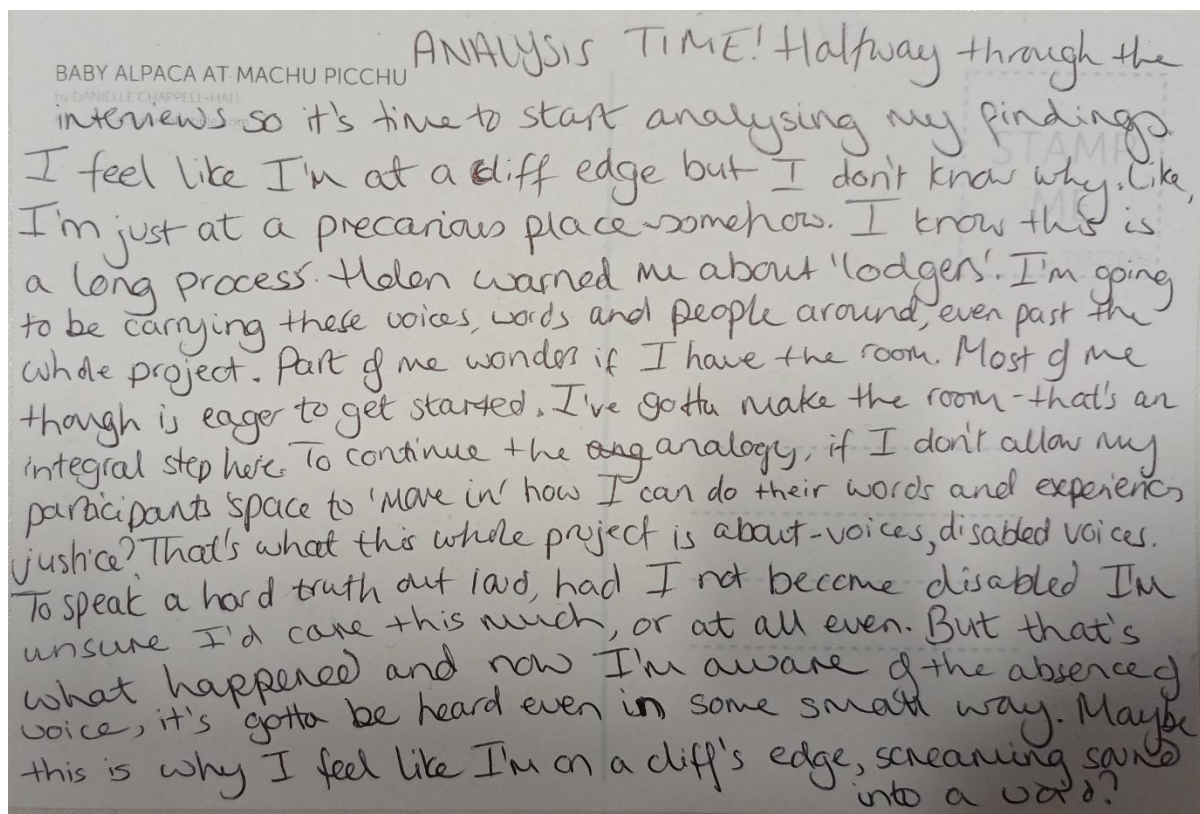 ANALYSIS TIME! Halfway through the
BABY ALPACA AT MACHU PICCHU
by DANIELLE CHAPPELL-HALL
interviews so it's time to start analysing my findings.
STAMP
I feel like I'm at a cliff edge but I don't know why. Like,
ME
I'm just at a precarious place somehow. I know this is
a long process. Helen warned me about 'lodgers'. I'm going
to be carrying these voices, words and people around, even past the
whole project. Part of me wonders if I have the room. Most of me
though is eager to get started. I've gotta make the room - that's an
integral step here. To continue the ang analogy, if I don't allow my
participants space to 'move in' how I can do their words and experiences
justice? That's what this whole project is about - voices, disabled voices.
To speak a hard truth out loud, had I not become disabled I'm
unsure I'd care this much, or at all even. But that's
what happened and now I'm aware of the absence of
voice, it's gotta be heard even in some small way. Maybe
this is why I feel like I'm on a cliff's edge, screaming sound
into a void?